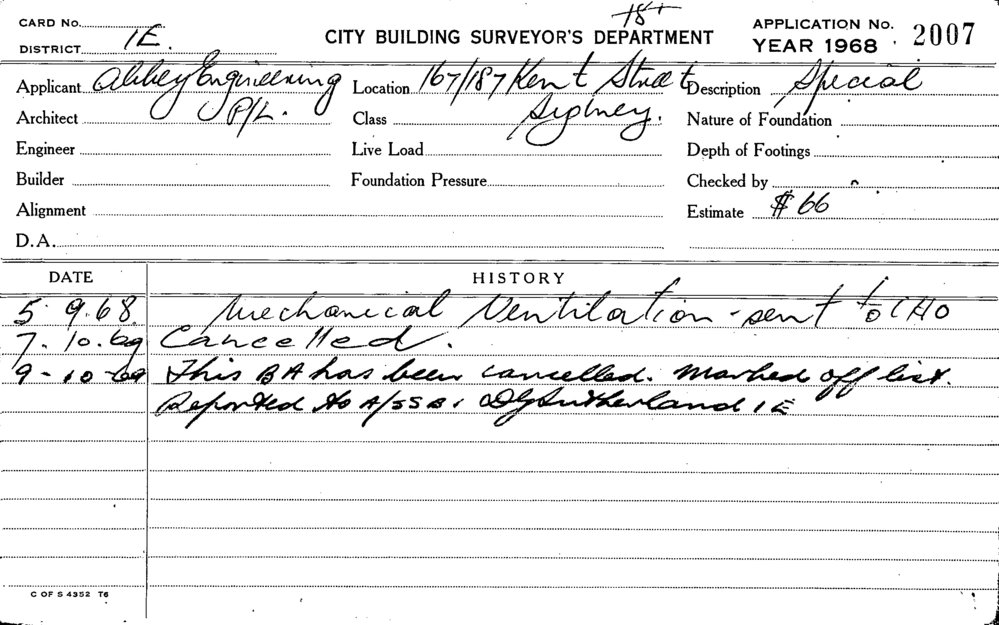 CARD No.
DISTRICT 1E.
CITY BUILDING SURVEYOR'S DEPARTMENT
APPLICATION No.
YEAR 1968 2007
Applicant Abbey Engineering P/L.
Location 167/187 Kent Street Sydney.
Description Special
Architect
Class
Nature of Foundation
Engineer
Live Load
Depth of Footings
Builder
Foundation Pressure
Checked by
Alignment
Estimate $66
D.A.
DATE HISTORY
5 9.68. Mechanical Ventilation - sent to CHO
7.10.69 Cancelled.
9-10-69 This BA has been cancelled. Marked off list.
Reported to A/SSB. DG Sutherland 1E
C OF S 4352 T6